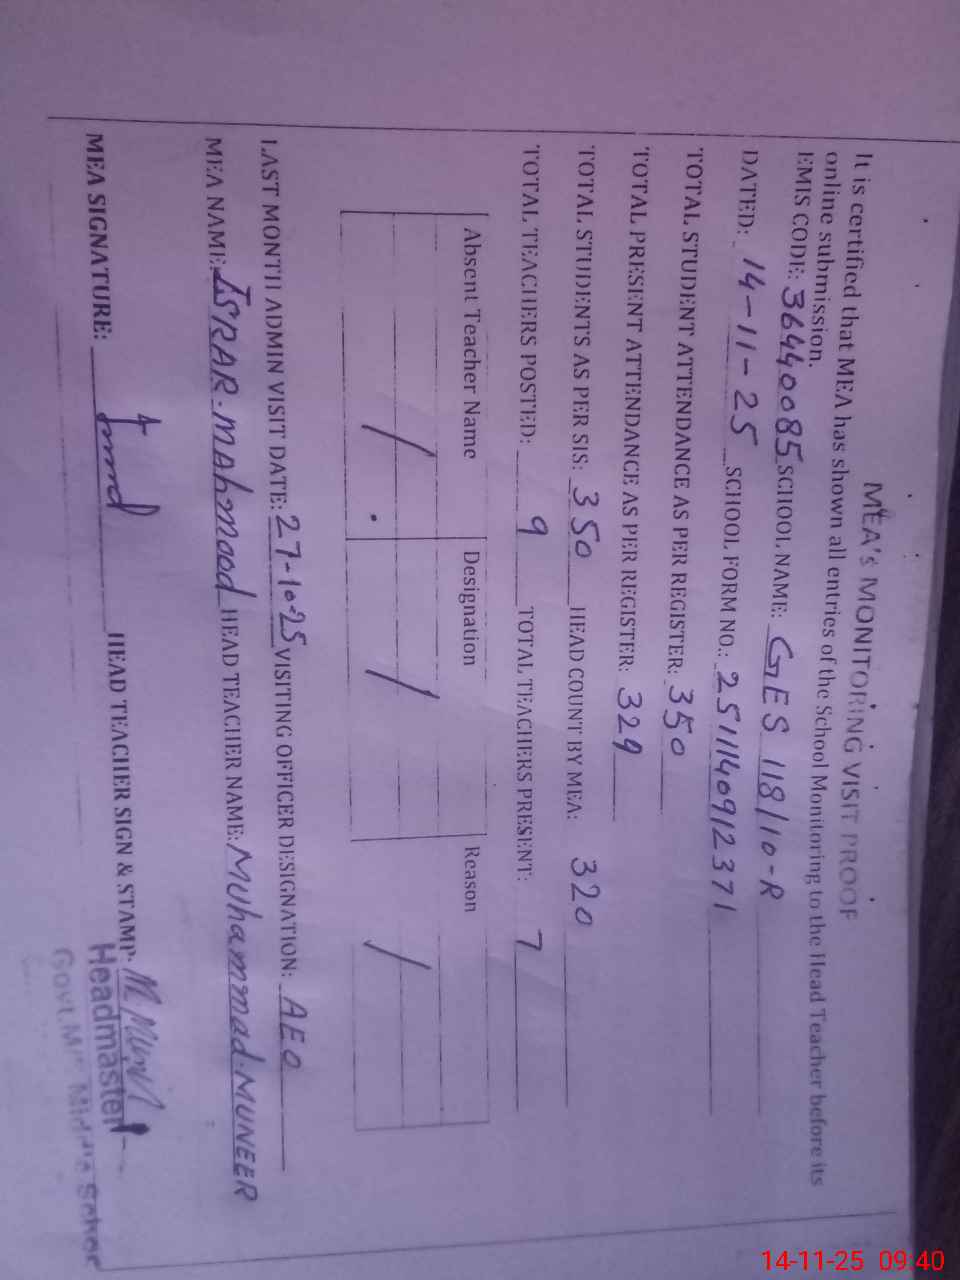 MEA's MONITORING VISIT PROOF
It is certified that MEA has shown all entries of the School Monitoring to the Head Teacher before its
online submission.
EMIS CODE: 36440085 SCHOOL NAME: GES 118/10-R
DATED: 14-11-25 SCHOOL FORM NO.: 2511140912371
TOTAL STUDENT ATTENDANCE AS PER REGISTER: 350
TOTAL PRESENT ATTENDANCE AS PER REGISTER: 329
TOTAL STUDENTS AS PER SIS: 350 HEAD COUNT BY MEA: 320
TOTAL TEACHERS POSTED: 9 TOTAL TEACHERS PRESENT: 7
Absent Teacher Name Designation Reason
/ / /
LAST MONTH ADMIN VISIT DATE: 27-10-25 VISITING OFFICER DESIGNATION: AEO
MEA NAME: ISRAR. MAhmood HEAD TEACHER NAME: MUhammad. MUNEER
MEA SIGNATURE: HEAD TEACHER SIGN & STAMP:
Headmaster
Govt. Middle School
14-11-25 09:40